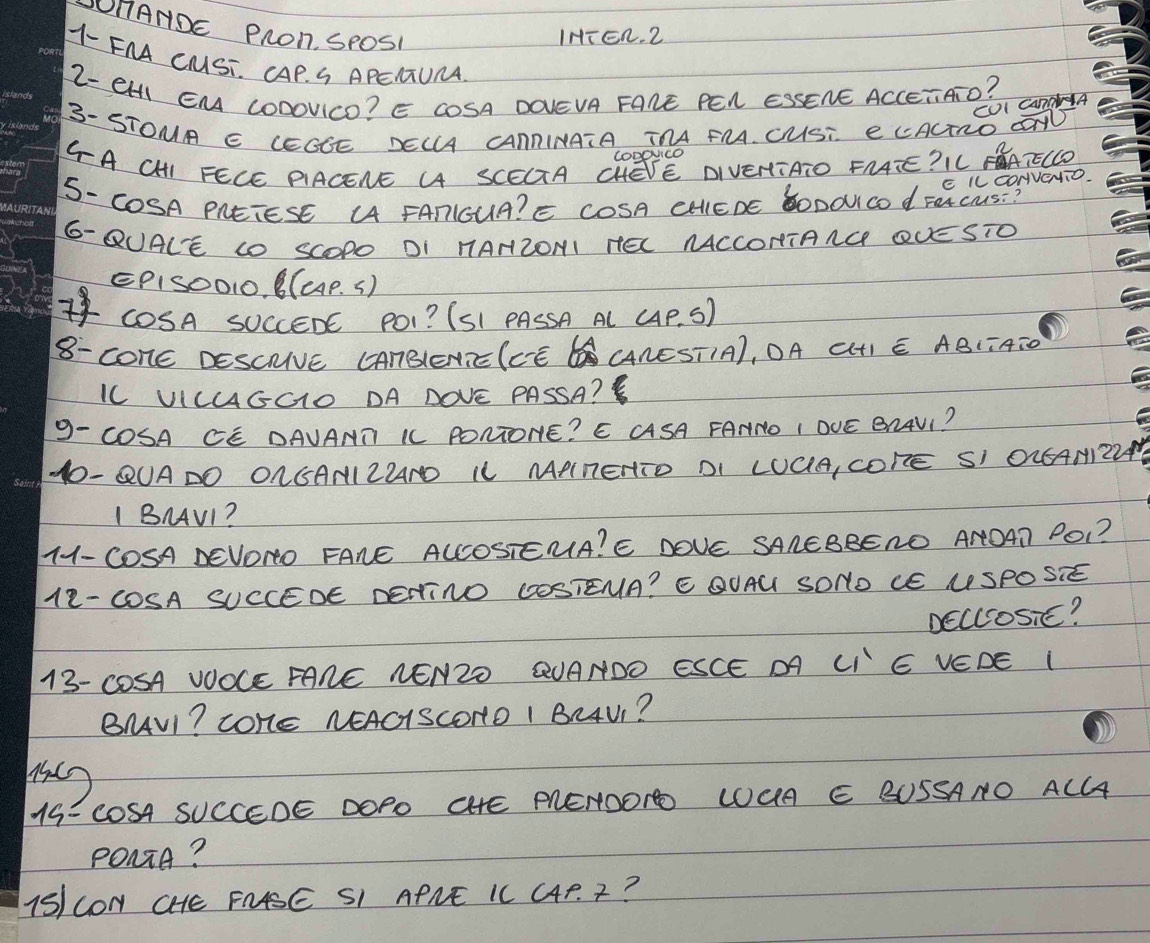 DOMANDE PROM. SPOSI INTER.2
1- FRA CRIST. CAP. 4 APERTURA.
2- CHI ERA LODOVICO? E COSA DOVEVA FARE PER ESSERE ACCETTATO?
3- STORIA E LEGGE DELLA CAMMINATA TRA FRA. CRIST. e L'ALTRO CON CUI CAMMINA
4- A CHI FECE PIACERE LA SCELTA CHE LODOVICO È DIVENTATO FRATE? IL FRATELLO E IL CONVENTO.
5- COSA PRETESE LA FAMIGLIA? E COSA CHIEDE LODOVICO / FRA CRIST.?
6- QUAL'È LO SCOPO DI MANZONI NEL RACCONTARCI QUESTO
EPISODIO. (CAP. 4)
7- COSA SUCCEDE POI? (SI PASSA AL CAP. 5)
8- COME DESCRIVE L'AMBIENTE (C'È LA CARESTIA), DA CHI È ABITATO
IL VILLAGGIO DA DOVE PASSA?
9- COSA C'È DAVANTI IL PORTONE? E CASA FANNO I DUE BRAVI?
10- QUADO ORGANIZZANO IL RAPIMENTO DI LUCIA, COME SI ORGANIZZAN
I BRAVI?
11- COSA DEVONO FARE ALL'OSTERIA? E DOVE SAREBBERO ANDATI POI?
12- COSA SUCCEDE DENTRO L'OSTERIA? E QUALI SONO LE RISPOSTE
DELL'OSTE?
13- COSA VUOLE FARE RENZO QUANDO ESCE DA LÌ E VEDE I
BRAVI? COME REAGISCONO I BRAVI?
14- COSA SUCCEDE DOPO CHE PRENDONO LUCIA E BUSSANO ALLA
PORTA?
15) CON CHE FRASE SI APRE IL CAP. 7?
PORTU
islands
MO
y islands
stern
ahara
MAURITANI
GUINEA
Saint